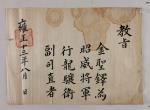 教旨
金聖鐸爲
昭威將軍
行龍驤衛
副司直者
雍正十三年八月 日